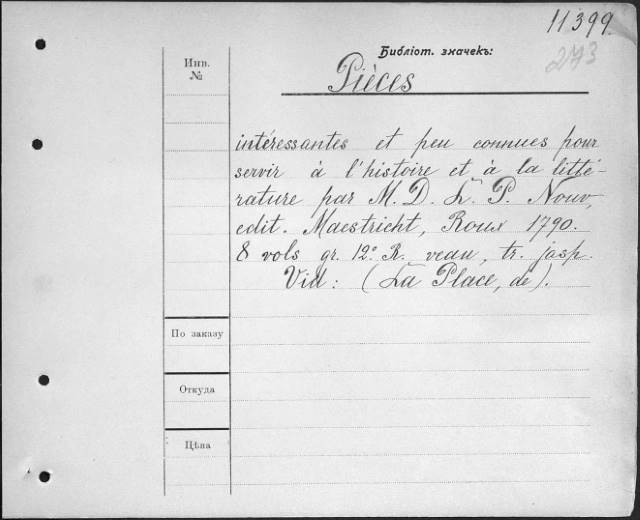 11399.
273
Библіот. значекъ:
Инв.
№
Pièces
intéressantes et peu connues pour
servir à l'histoire et à la litté-
rature par M. D. L. P. Nouv.
edit. Maestricht, Roux 1790.
8 vols gr. 12° R. veau, tr. jasp.
Vid: (La Place, de).
По заказу
Откуда
Цѣна